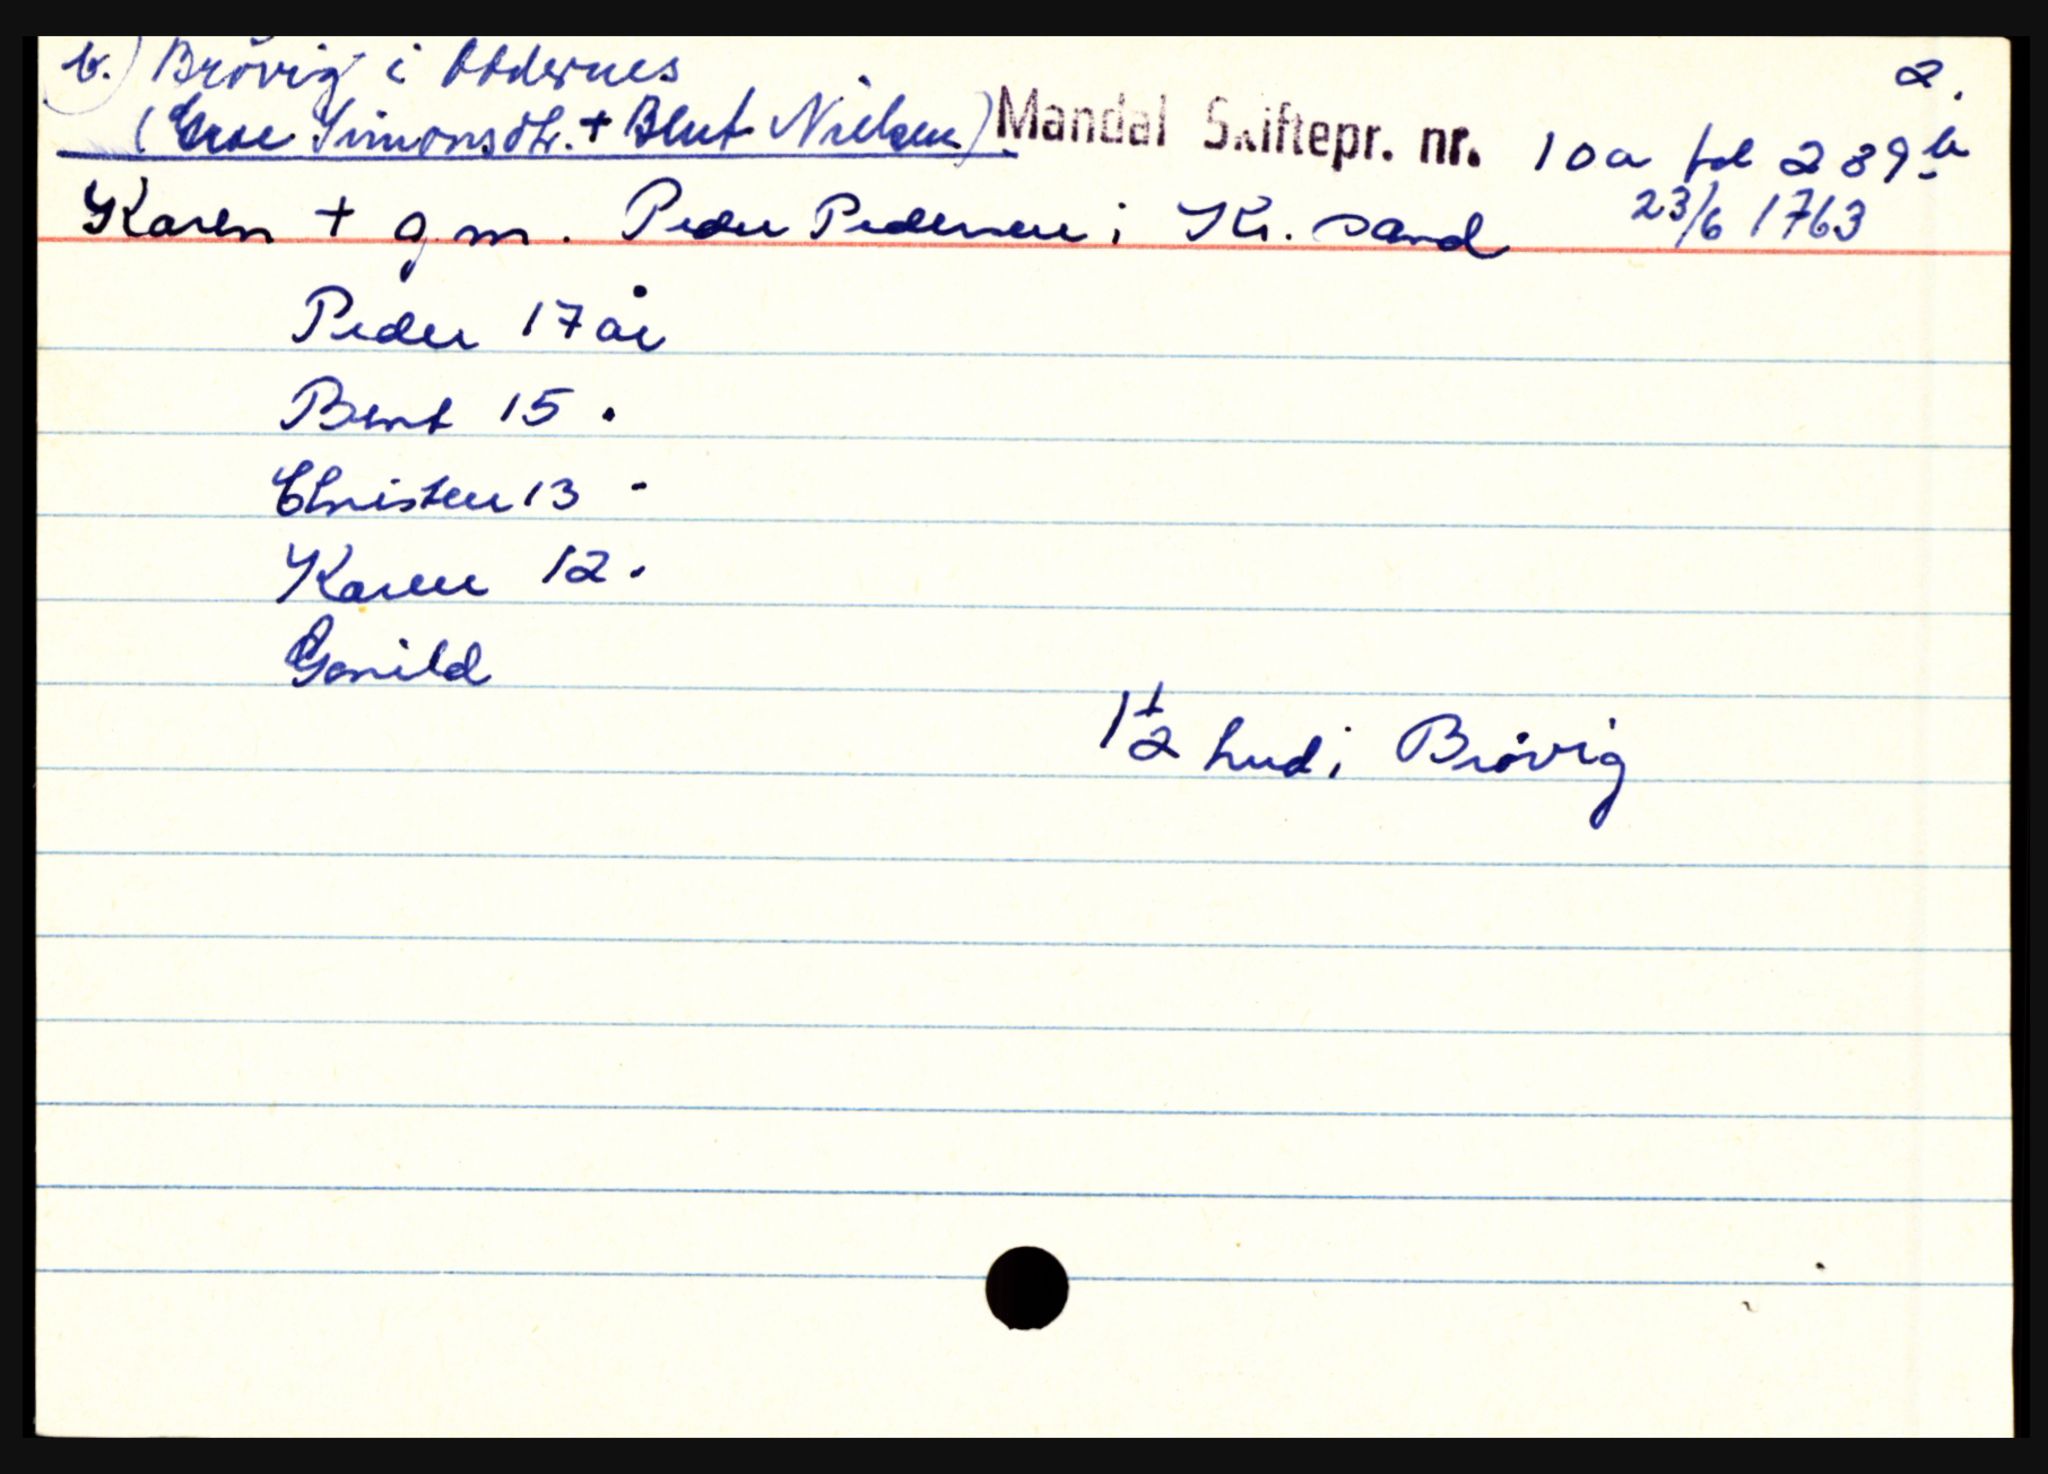 b.) Brövig i Oddernes 2.
(Groe Simonsdtr. + Bent Nielsen) Mandal Skiftepr. nr. 10a fol 289b
Karen + g.m. Peder Pedersen i Kr. sand 23/6 1763
Peder 17 år
Bent 15 .
Christen 13 -
Karen 12 .
Gonild
1 1/2 hud i Brövig